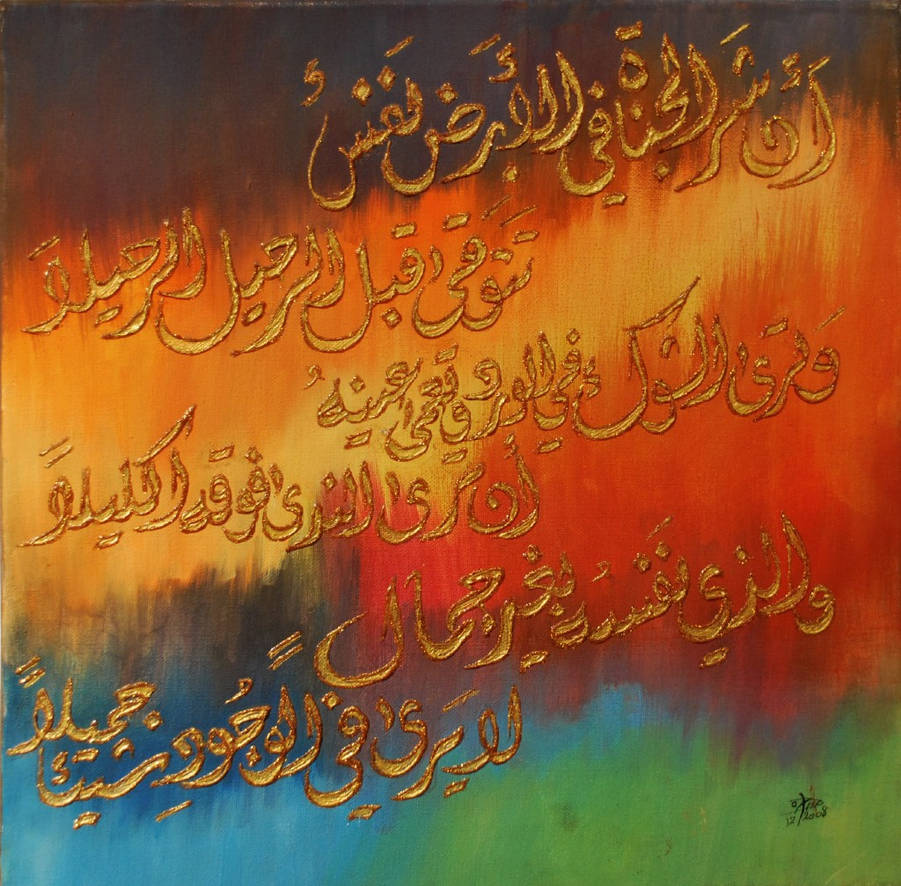 أن شر الجناة في الأرض نفس
تتوقى قبل الرحيل الرحيلا
وترى الشوك في الورود وتعمى عينه
أن ترى الندى فوقه اكليلا
والذي نفسه بغير جمال
لا يرى في الوجود شيئاً جميلاً
12 2008